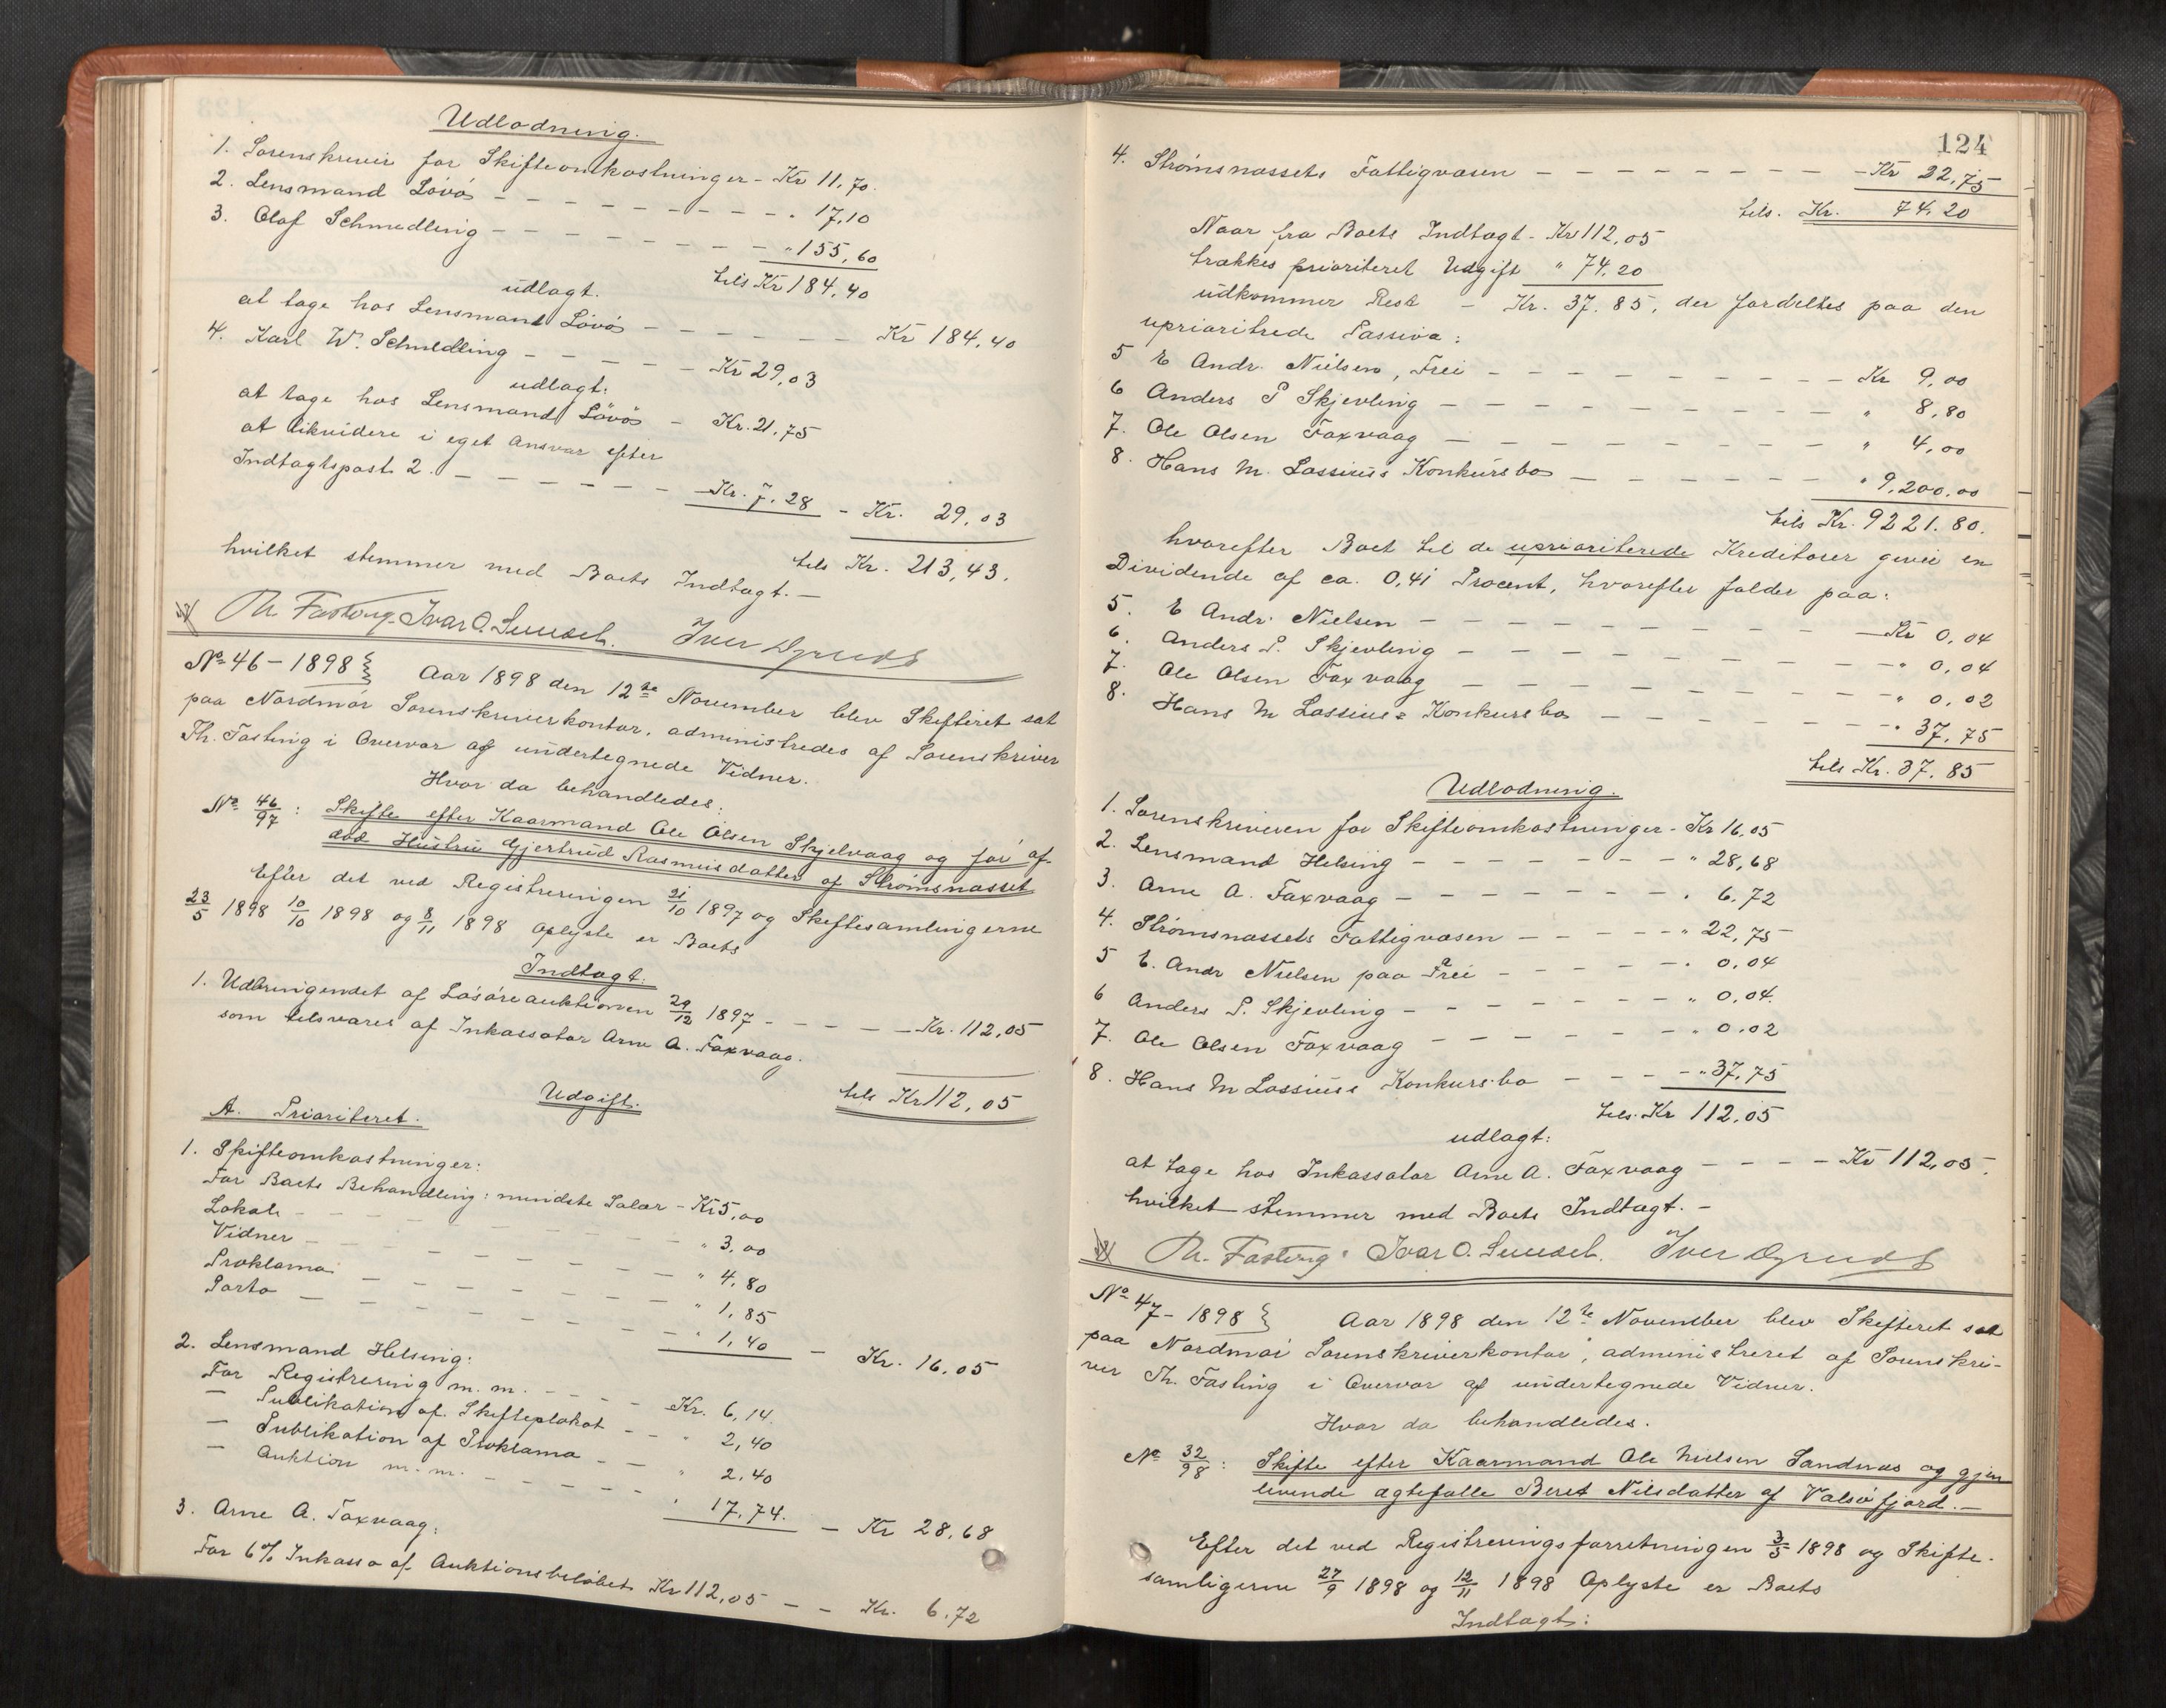 Udlodning.
1. Sorenskriver for Skifteomkostninger - Kr 11,70.
2. Lensmand Lövö - - - - - - - - - - " 17,10
3. Olaf Schmedling - - - - - - - - - - " 155,60
tils Kr 184,40
udlagt.
at tage hos Lensmand Lövö - - - - - - - Kr 184,40
4. Karl W. Schmedling - - - - - - Kr 29,03
udlagt:
at tage hos Lensmand Lövö - Kr. 21,75
at likvidere i eget Ansvar efter
Indtægtspost 2. - - - - - - - Kr. 7,28 - Kr. 29,03
tils Kr. 213,43.
hvilket stemmer med Boets Indtægt. -
Th. Fasting. Ivar O.
No 46 - 1898 } Aar 1898 den 12te November blev Skifteret sat
paa Nordmør Sorenskriverkontor, administredes af Sorenskriver
Th. Fasting i Overvær af undertegnede Vidner.
Hvor da behandledes:
No 46/97: Skifte efter Kaarmand Ole Olsen Skjelvaag og før af-
død Hustru Gjertrud Rasmusdatter af Strømsnæsset
Efter det ved Registreringen 21/10 1897 og Skiftesamlingerne
23/5 1898 10/10 1898 og 8/11 1898 oplyste er Boets
Indtægt.
1. Udbringendet af Løsøreauktionen 29/12 1897 - - - - - Kr. 112,05
som tilsvares af Inkassator Arne A. Faxvaag.
tils Kr 112,05
Udgift.
A. Prioriteret.
1. Skifteomkostninger:
For Boets Behandling: mindste Salær - Kr 5,00
Lokale - - - - - - - - - - " 3,00
Vidner - - - - - - - - - - " 4,80
Proklama - - - - - - - - - " 1,85
Porto - - - - - - - - - - " 1,40 - Kr. 16,05
2. Lensmand Helsing:
For Registrering m. m. - - - - Kr. 6,14.
— Publikation af Skifteplakat - - " 2,40
— Publikation af Proklama - - " 2,40
— Auktion m. m. - - - - - - " 17,74. - Kr 28,68
3. Arne A. Faxvaag:
For 6% Inkasso af Auktionsbeløbet Kr 112,05 - - Kr. 6,72
124
4. Strømsnæssets Fattigvæsen - - - - - - - - - Kr 22,75
tils. Kr. 74,20
Naar fra Boets Indtægt - Kr 112,05
trækkes prioriteret Udgift " 74,20
udkommer Rest - Kr. 37.85, der fordeltes paa den
uprioritrede Passiva:
5 E Andr. Nielsen, Frei - - - - - - - - - - Kr 9,00
6 Anders P Skjevling - - - - - - - - - - " 8,80
7. Ole Olsen Faxvaag - - - - - - - - - - " 4,00
8. Hans M. Lossius's Konkursbo - - - - - - " 9,200,00
tils Kr. 9221.80.
hvorefter Boet til de uprioriterede Kreditorer giver en
Dividende af ca. 0,41 Procent, hvorefter falder paa:
5. E Andr. Nielsen - - - - - - - - - - Kr 0,04
6. Anders P. Skjevling - - - - - - - - - " 0,04
7. Ole Olsen Faxvaag - - - - - - - - - " 0,02
8. Hans M Lossius's Konkursbo - - - - - - " 37,75
tils Kr. 37,85
Udlodning.
1. Sorenskriveren for Skifteomkostninger - Kr 16.05
2. Lensmand Helsing - - - - - - - - " 28,68
3. Arne A. Faxvaag - - - - - - - - " 6.72
4. Strømsnæssets Fattigvæsen - - - - - " 22,75
5 E. Andr Nielsen paa Frei - - - - - " 0,04
6 Anders P. Skjevling - - - - - - - " 0,04.
7. Ole Olsen Faxvaag - - - - - - - " 0.02
8. Hans M Lossius's Konkursbo - - - - " 37,75
tils. Kr 112,05
udlagt:
at tage hos Inkassator Arne A. Faxvaag - - - - Kr 112,05.
hvilket stemmer med Boets Indtægt. -
Th. Fasting. Ivar O.
No 47 - 1898 } Aar 1898 den 12te November blev Skifteret sat
paa Nordmør Sorenskriverkontor, administreret af Sorenskri-
ver Th. Fasting i Overvær af undertegnede Vidner.
Hvor da behandledes.
No 32/98: Skifte efter Kaarmand Ole Nielsen Sandnes og gjen
levende ægtefælle Beret Nilsdatter af Valsøfjord. -
Efter det ved Registreringsforretningen 3/5 1898 og Skifte-
samligerne 27/9 1898 og 12/11 1898 Oplyste er Boets
Indtægt: